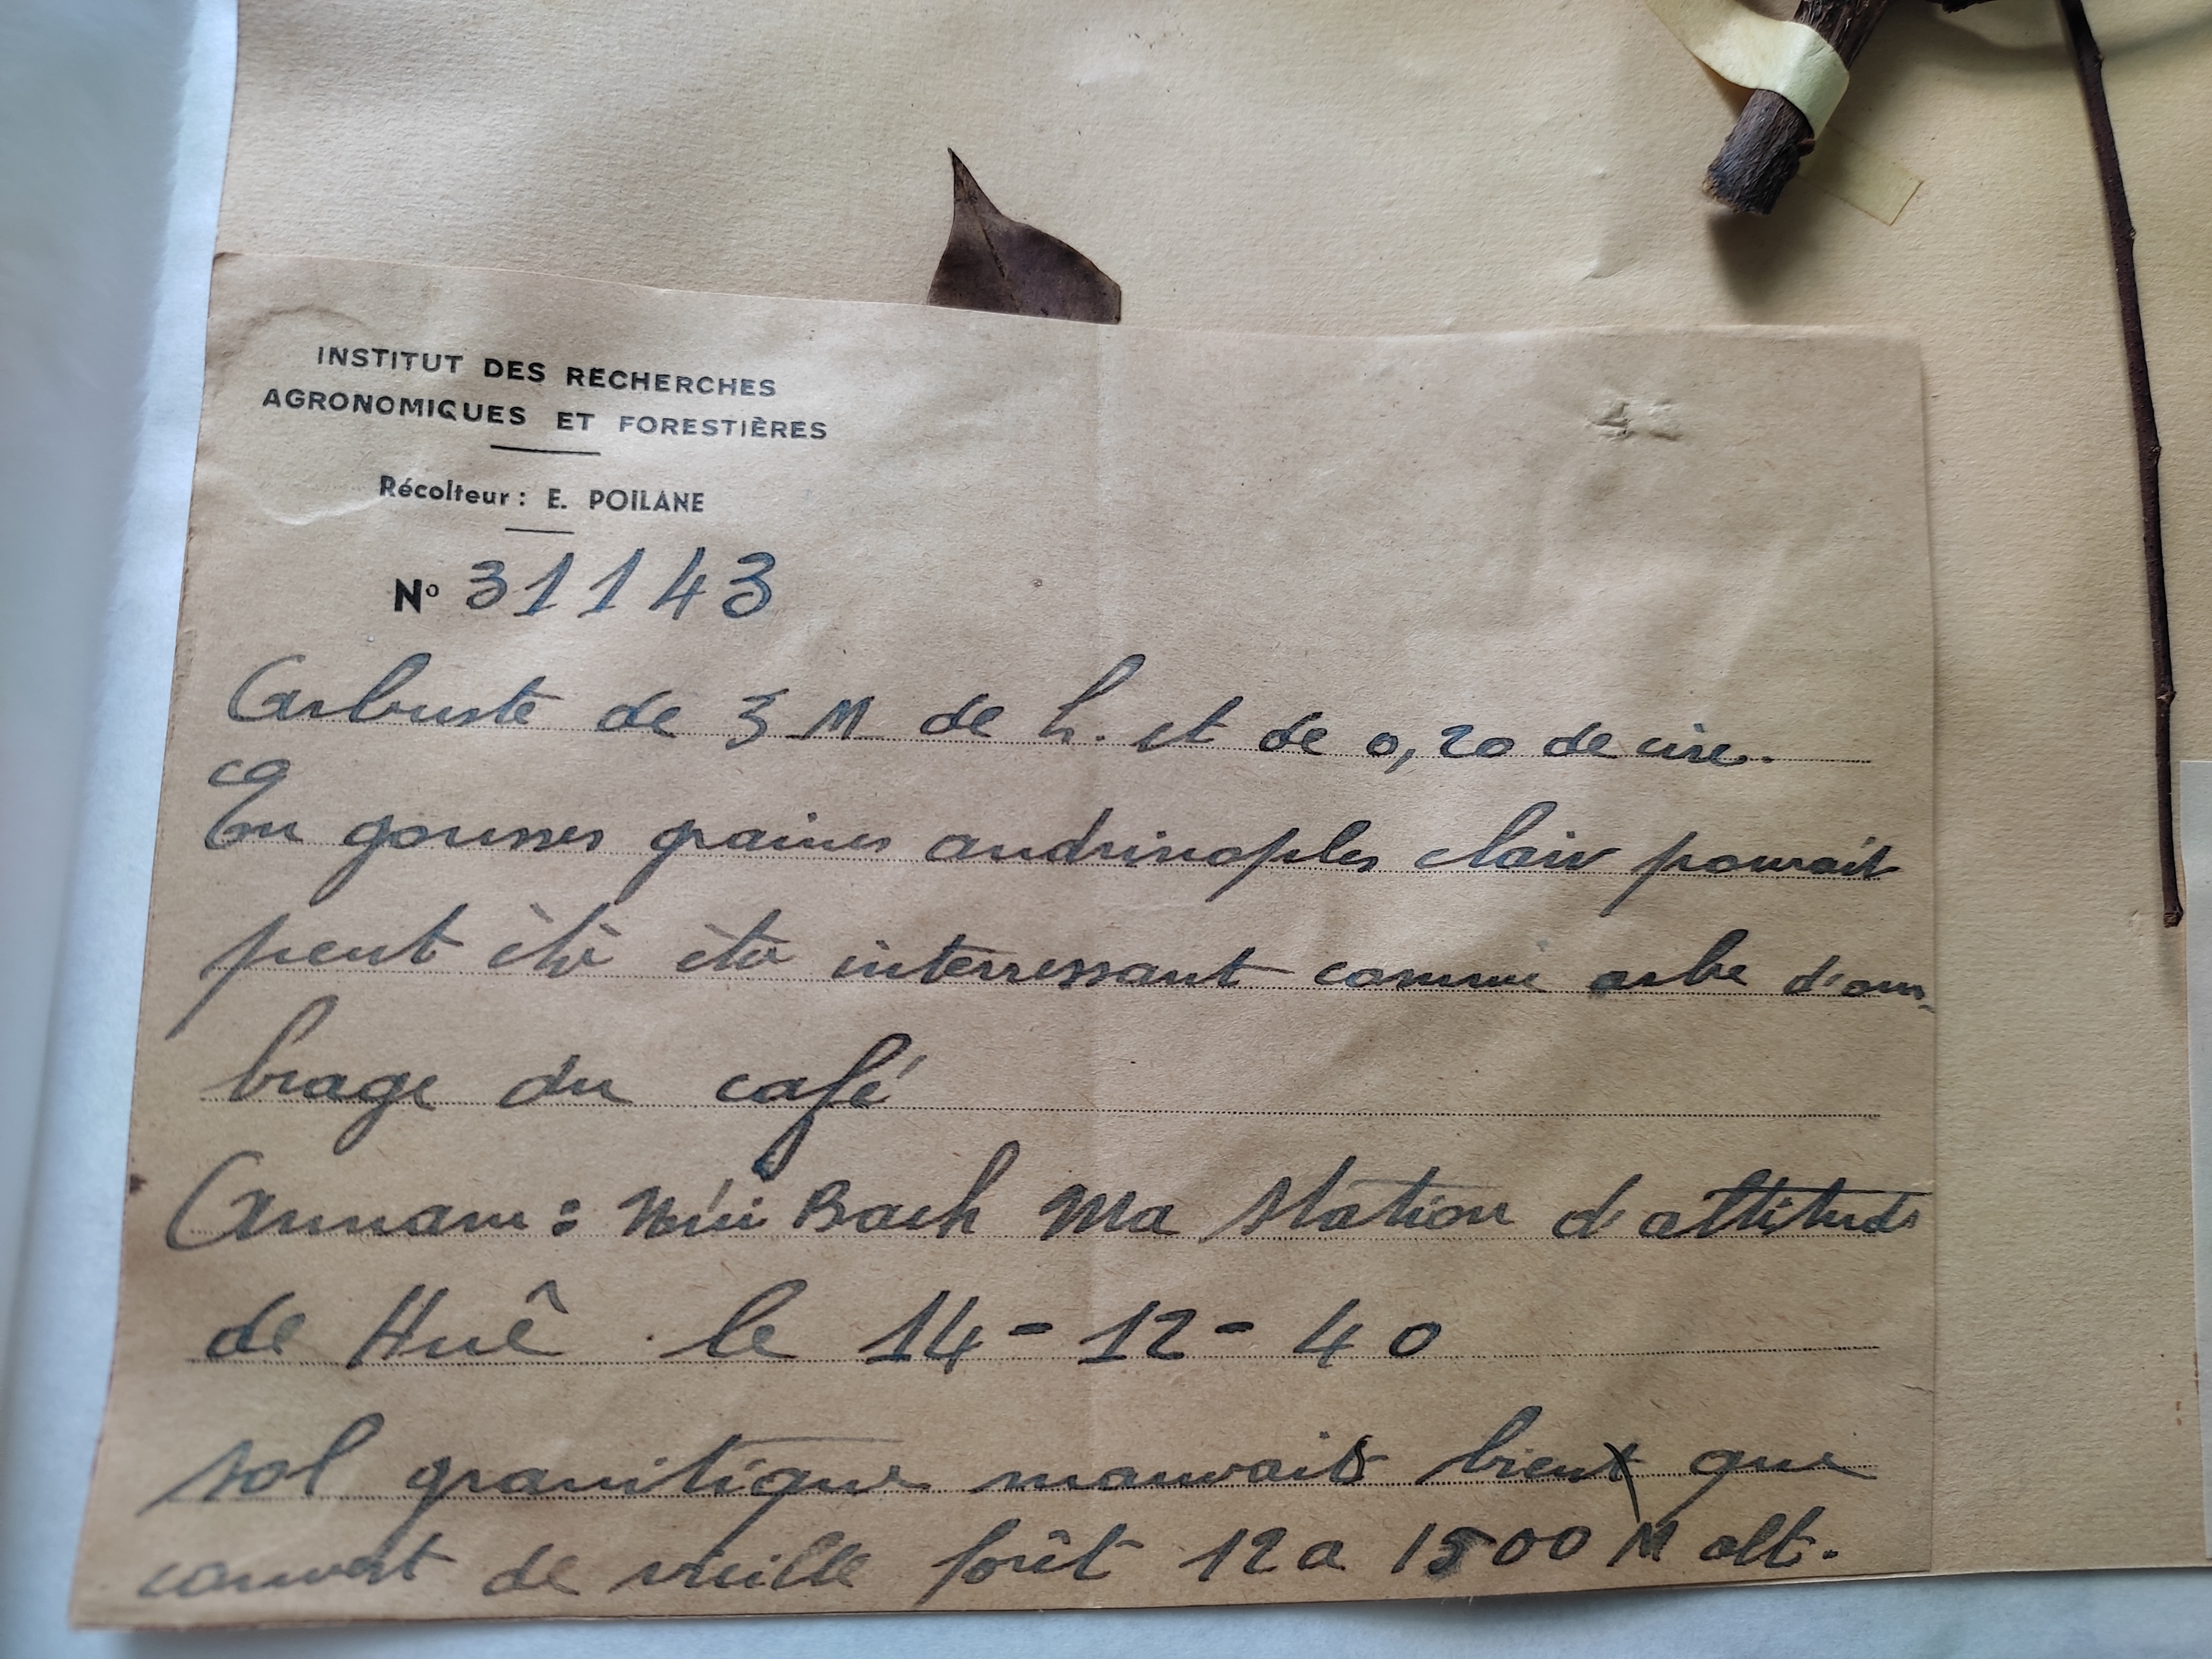 INSTITUT DES RECHERCHES
AGRONOMIQUES ET FORESTIÈRES
Récolteur : E. POILANE
Nº 31143
Arbuste de 3 M de h. et de 0,20 de circ.
En gousses graines andrinoples clair pourait
peut être être interressant comme arbe d'om-
brage du café
Annam : Núi Bach Ma station d'altitude
de Huê le 14-12-40
sol granitique mauvais bien que
couvert de vieille forêt 12 a 1500 M alt.